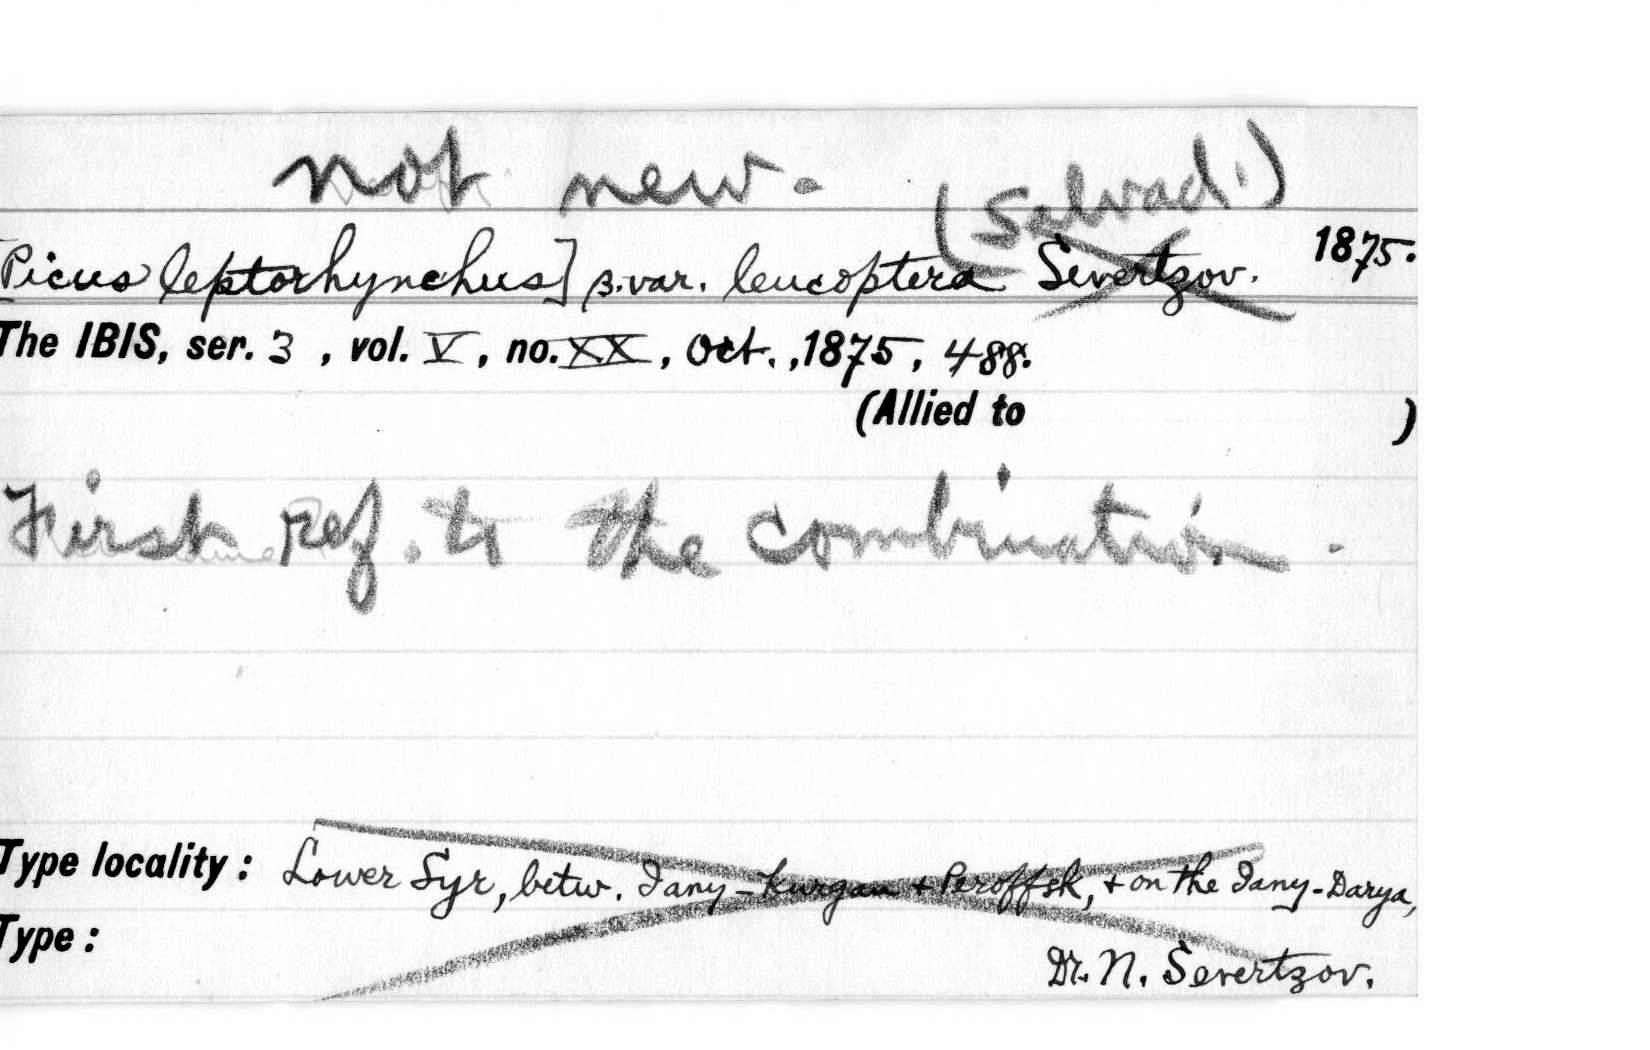 not new.
(Salvad.)
[Picus leptorhynchus] β. var. leucoptera Severtzov. 1875.
The IBIS, ser. 3, vol. V, no. XX, Oct., 1875, 488.
(Allied to )
First ref. to the combination.
Type locality: Lower Syr, betw. Jany-Kurgan + Peroffsk, + on the Jany-Darya,
Type:
Dr. N. Severtzov.